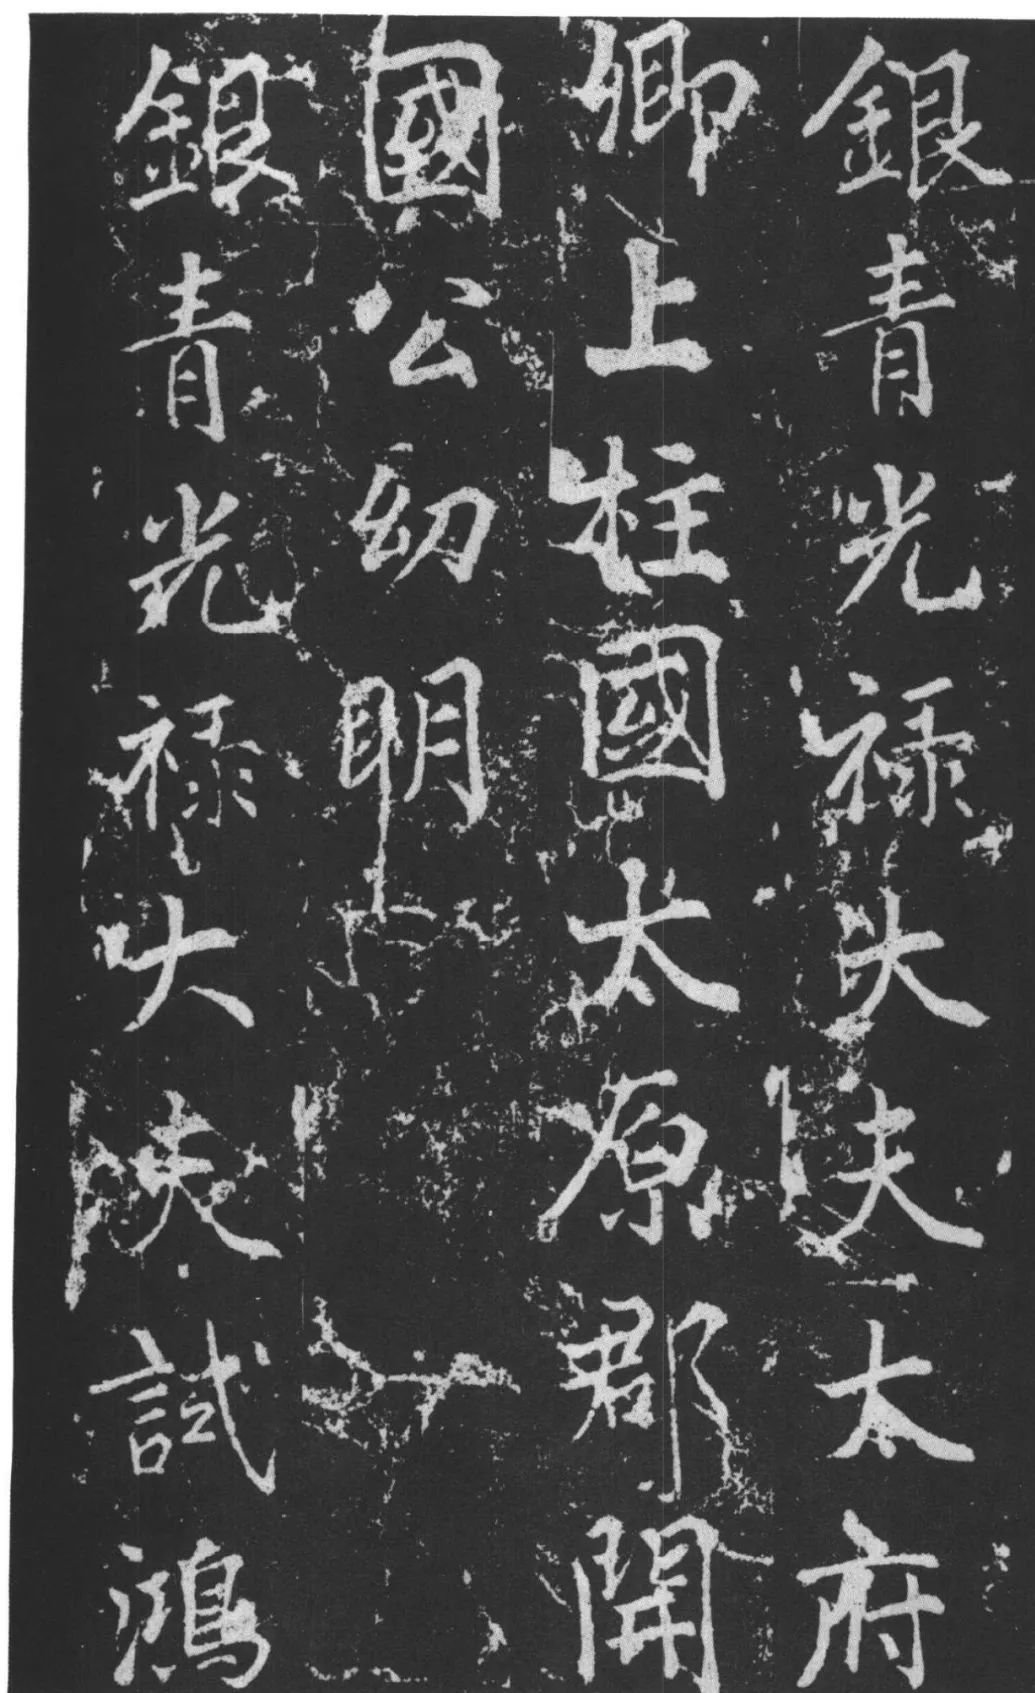 銀青光禄大夫太府
卿上柱國太原郡開
國公幼明
銀青光禄大夫試鴻